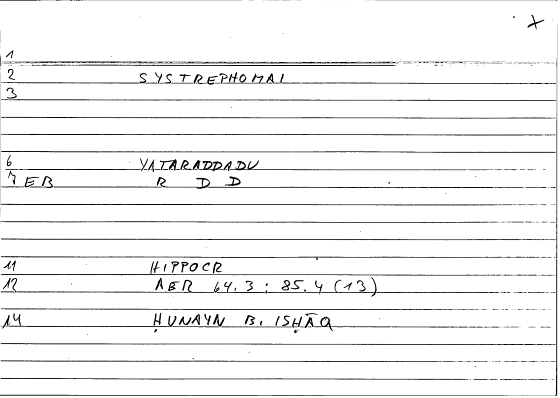 x
1
2 SYSTREPHOMAI
3
6 YATARADDADU
7 EB R D D
11 HIPPOCR
12 AER 64.3 : 85.4 (13)
14 ḤUNAYN B. ISḤĀQ